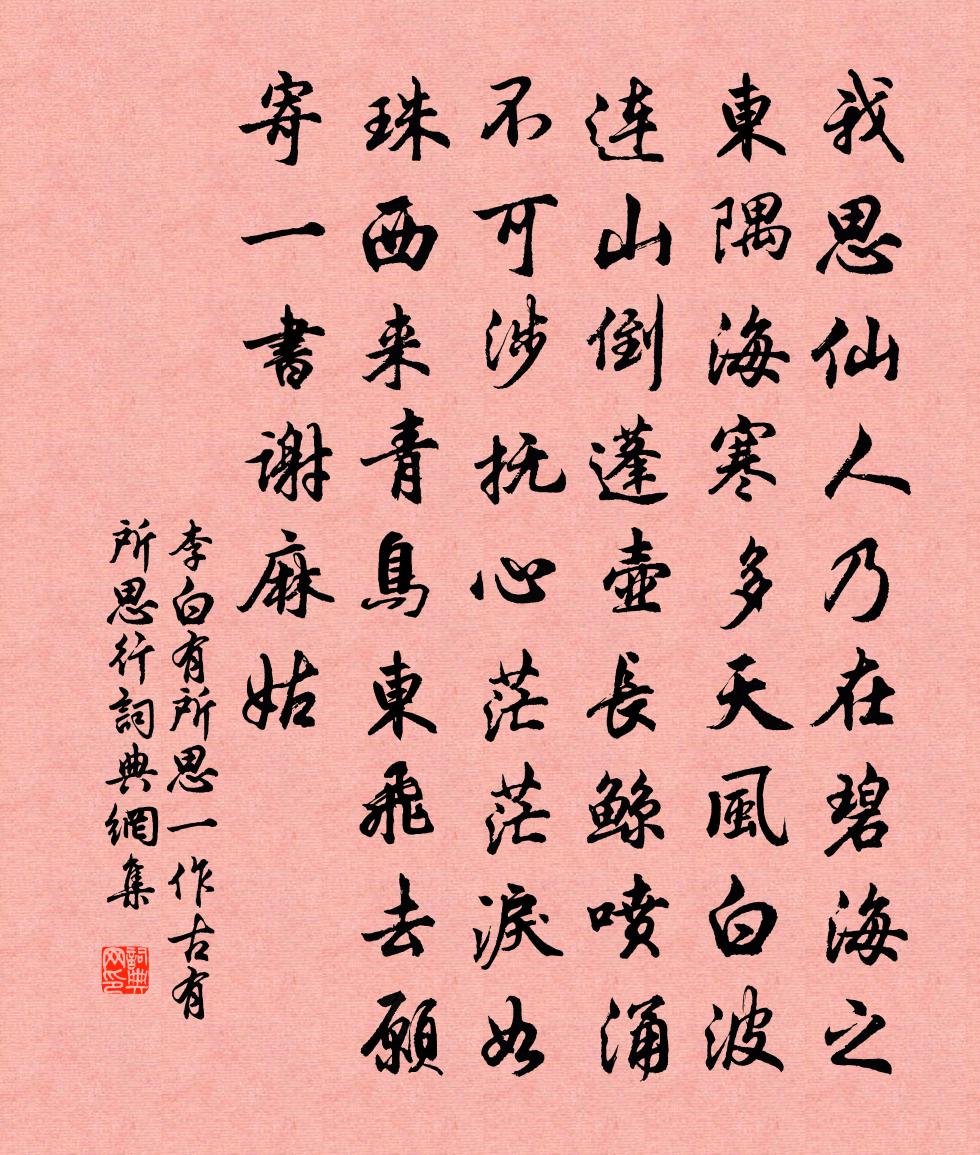 我思仙人乃在碧海之
東隅海寒多天風白波
连山倒蓬壺長鲸喷涌
不可涉抚心茫茫淚如
珠西来青鳥東飛去願
寄一書谢麻姑
李白有所思一作古有
所思行詞典網集
詞典
网印